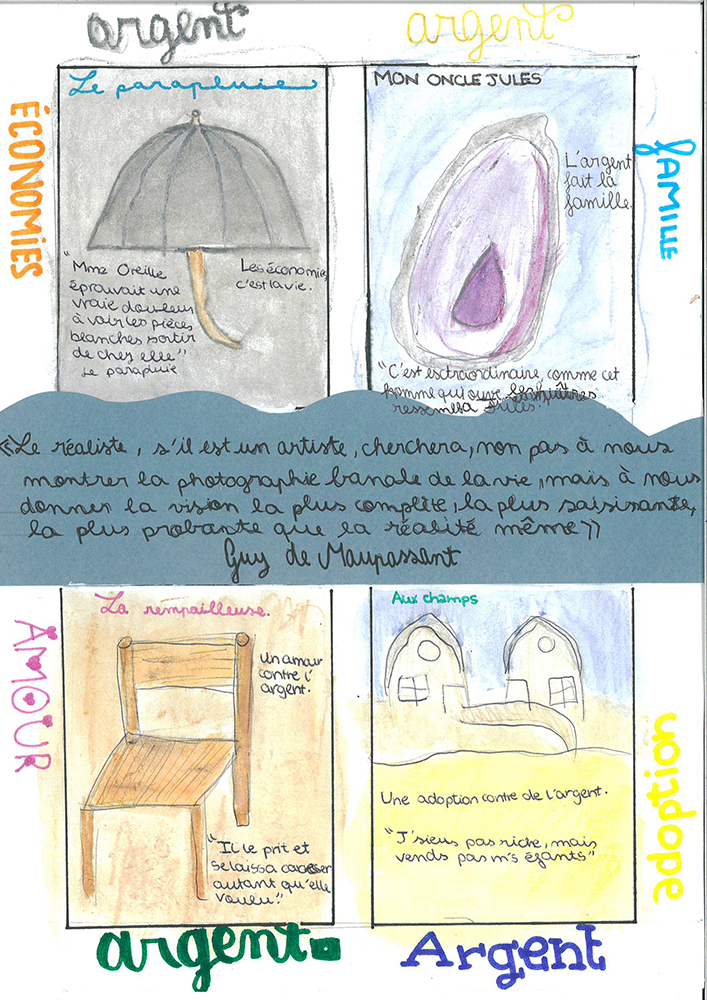 argent
argent
ÉCONOMIES
Le parapluie
"Mme Oreille
éprouvait une
vraie douleur
à voir les pièces
blanches sortir
de chez elle"
Le parapluie
Les économies,
c'est la vie.
MON ONCLE JULES
L'argent
fait la
famille.
"C'est esctraordinaire, comme cet
homme qui ouvre les huîtres
Jules."
fAMILLE
«Le réaliste, s'il est un artiste, cherchera, non pas à nous
montrer la photographie banale de la vie, mais à nous
donner la vision la plus complète, la plus saisisante,
la plus probante que la réalité même»
Guy de Maupassant
AMOUR
La rempailleuse.
Un amour
contre l'
argent.
"Il le prit et
se laissa caresser
autant qu'elle
voulu."
Aux champs
Une adoption contre de l'argent.
"J'sieus pas riche, mais
vends pas m's éfants"
adoption
argent
Argent